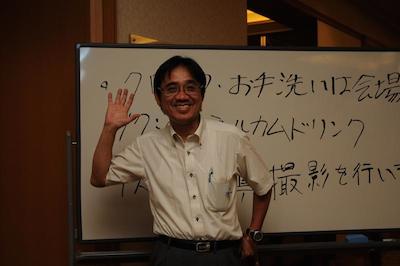 ・ク ・お手洗いは会場
ウ ルカムドリンク
撮影を行い